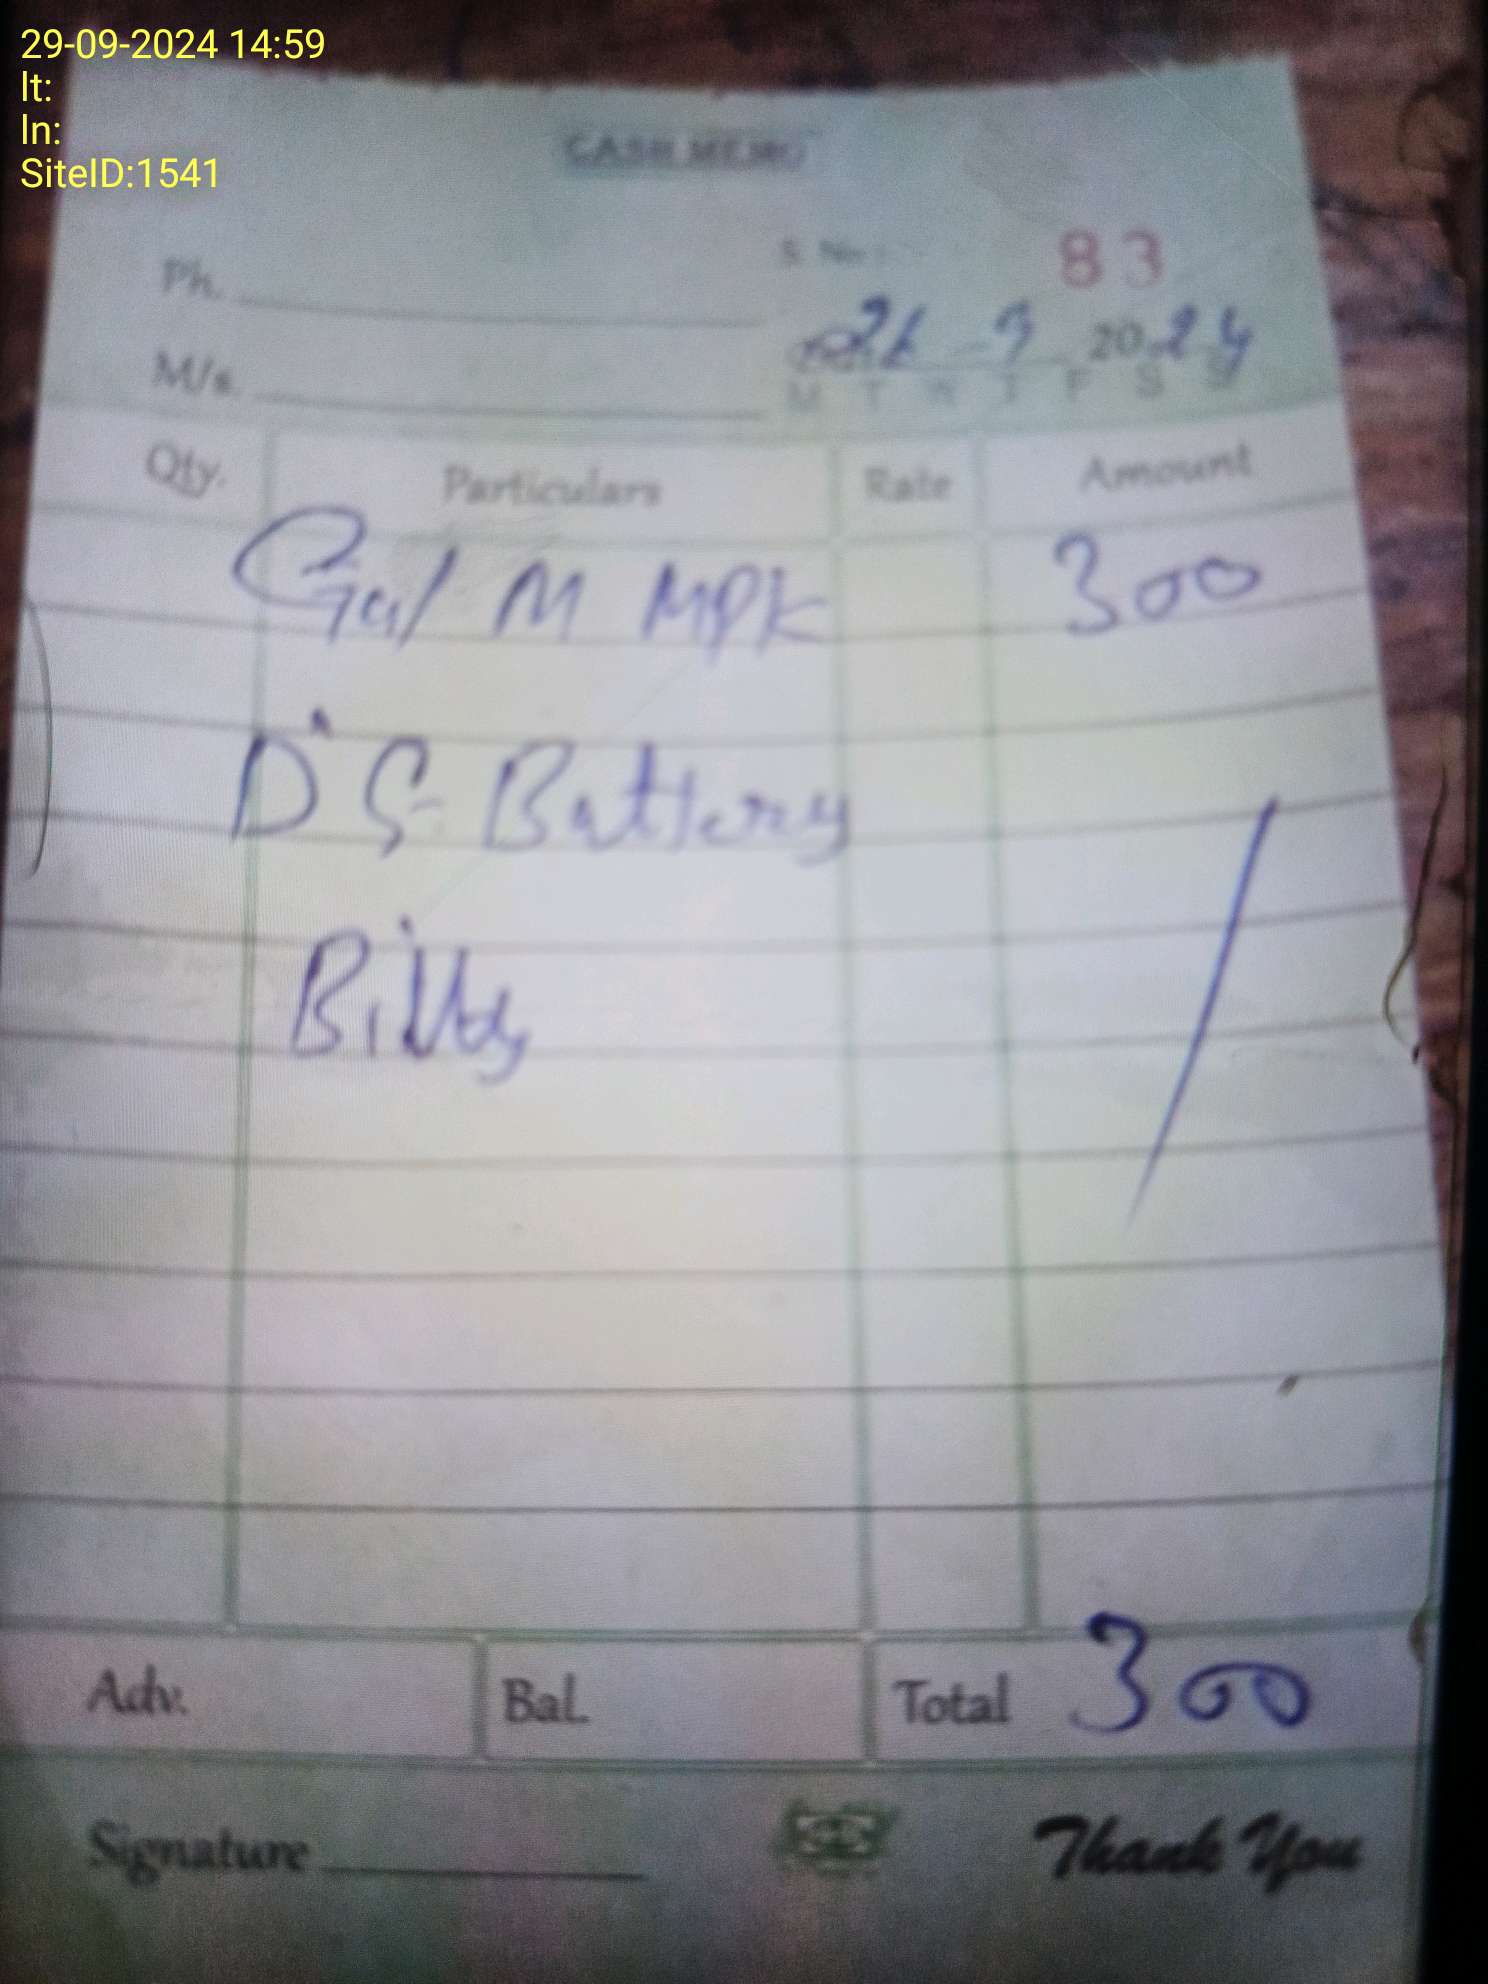 29-09-2024 14:59
lt:
ln:
SiteID:1541
CASH MEMO
S. No: 83
Ph.
20 24
M/s.
M T W T F S S
Qty. Particulars Rate Amount
M MPK 300
Battery
Total 300
Adv. Bal.
Signature Thank You